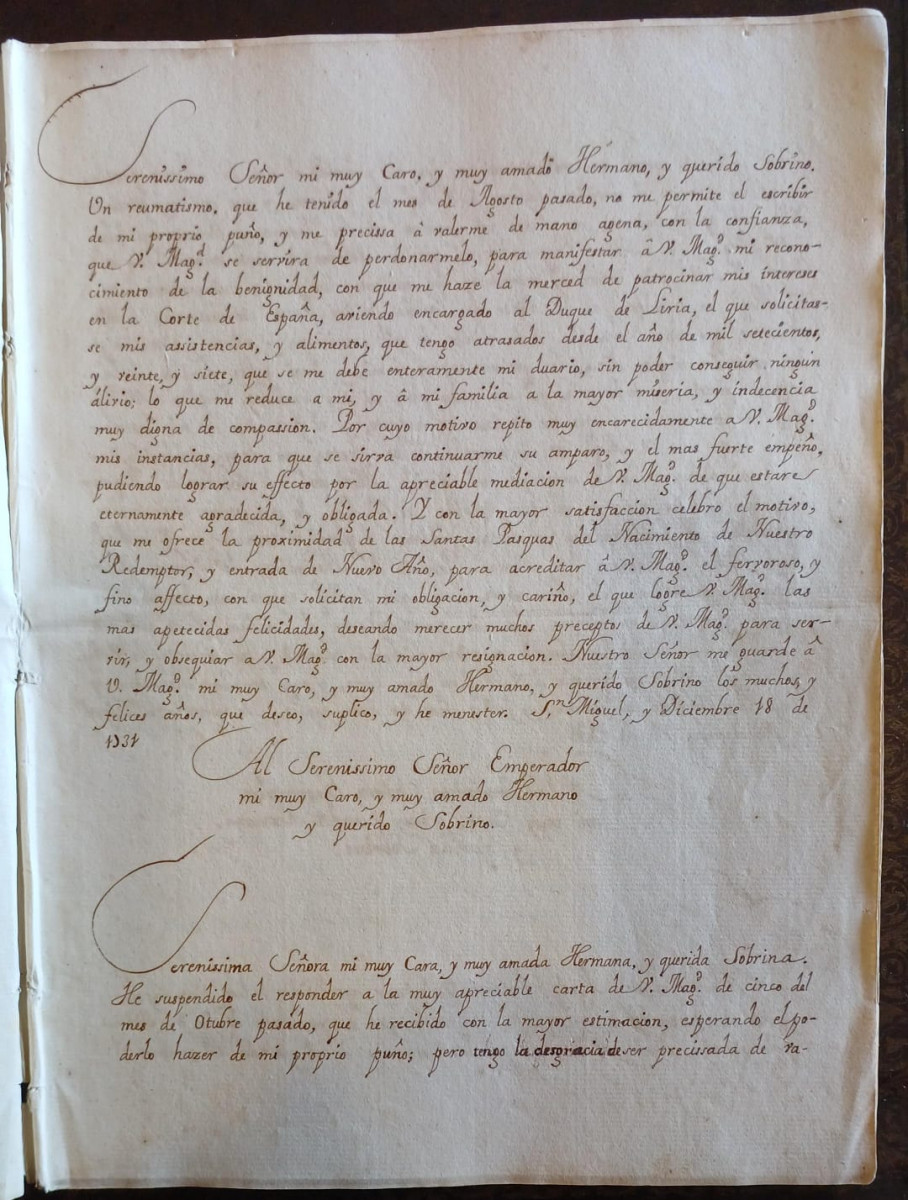 Sereníssimo Señor mi muy Caro, y muy amado Hermano, y querido Sobrino.
Un reumatismo, que he tenido el mes de Agosto pasado, no me permite el escribir
de mi proprio puño, y me precissa â valerme de mano agena, con la confianza,
que V. Mag.d se servira de perdonarmelo, para manifestar â V. Mag.d mi recono-
cimiento de la benignidad, con que me haze la merced de patrocinar mis intereses
en la Corte de España, aviendo encargado al Duque de Liria, el que solicitas-
se mis assistencias, y alimentos, que tengo atrasados desde el año de mil setecientos,
y veinte, y siete, que se me debe enteramente mi duario, sin poder conseguir ningun
alivio; lo que me reduce a mi, y â mi familia a la mayor miseria, y indecencia
muy digna de compassion. Por cuyo motivo repito muy encarecidamente a V. Mag.d
mis instancias, para que se sirva continuarme su amparo, y el mas fuerte empeño,
pudiendo lograr su effecto por la apreciable mediacion de V. Mag.d de que estare
eternamente agradecida, y obligada. Y con la mayor satisfaccion celebro el motivo,
que me ofrece la proximidad de las Santas Pasquas del Nacimiento de Nuestro
Redemptor, y entrada de Nuevo Año, para acreditar â V. Mag.d el fervoroso, y
fino affecto, con que solicitan mi obligacion, y cariño, el que logre V. Mag.d las
mas apetecidas felicidades, deseando merecer muchos preceptos de V. Mag.d para ser-
vir, y obsequiar a V. Mag.d con la mayor resignacion. Nuestro Señor me guarde â
V. Mag.d mi muy Caro, y muy amado Hermano, y querido Sobrino los muchos, y
felices años, que deseo, suplico, y he menester. S.n Miguel, y Diciembre 18 de
1731
Al Serenissimo Señor Emperador
mi muy Caro, y muy amado Hermano
y querido Sobrino.
Sereníssima Señora mi muy Cara, y muy amada Hermana, y querida Sobrina.
He suspendido el responder a la muy apreciable carta de V. Mag.d de cinco del
mes de Otubre pasado, que he recibido con la mayor estimacion, esperando el po-
derlo hazer de mi proprio puño; pero tengo la desgracia de ser precissada de va-